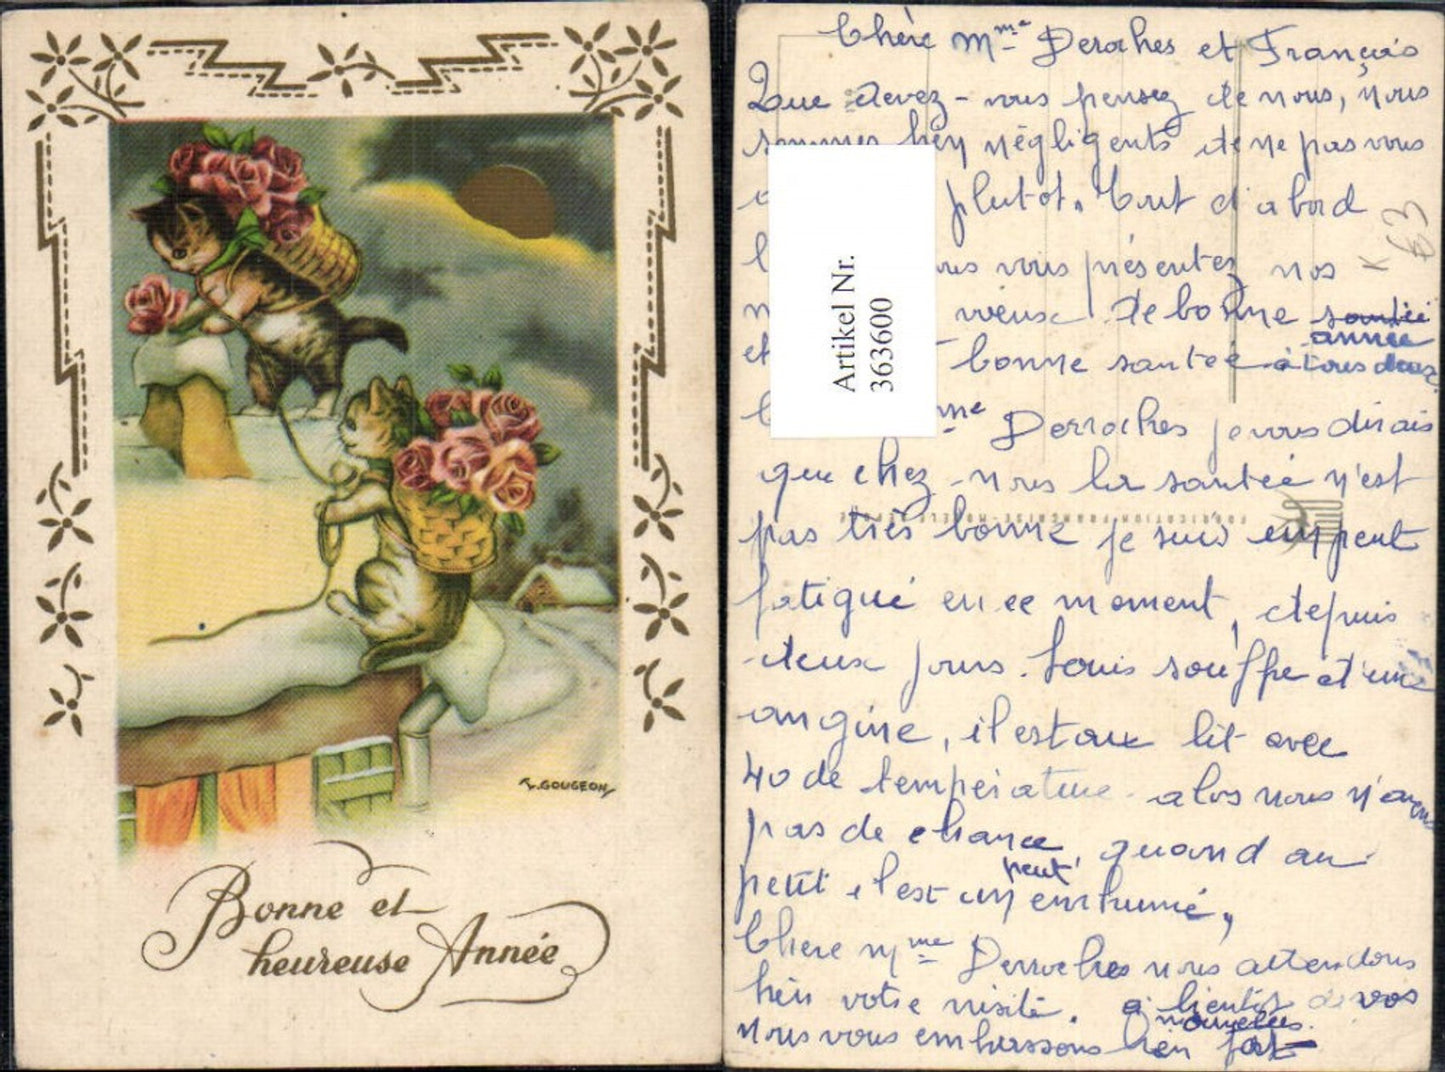 R. GOUGEON
Bonne et
heureuse Année
Chère Mme Deroches et François
Que devez-vous pensez de nous, nous
sommes bien négligents de ne pas vous
plutot. Tout d'abord
vous présentez nos
K 63
vieux de bonne santée
année
et bonne santée à tous deux
me Derroches je vous dirais
que chez nous la santée n'est
FABRICATION FRANÇAISE
pas très bonne je suis un peut
fatigué en ce moment, depuis
deux jours. Louis souffre d'une
angine, il est au lit avec
40 de température. alors nous n'avons
pas de chance quand au
petit il est un peut enrhumé,
Chere Mme Derroches nous attendons
bien votre visite. a bientôt de vos
nouvelles.
nous vous embrassons bien fort
Artikel Nr.
363600